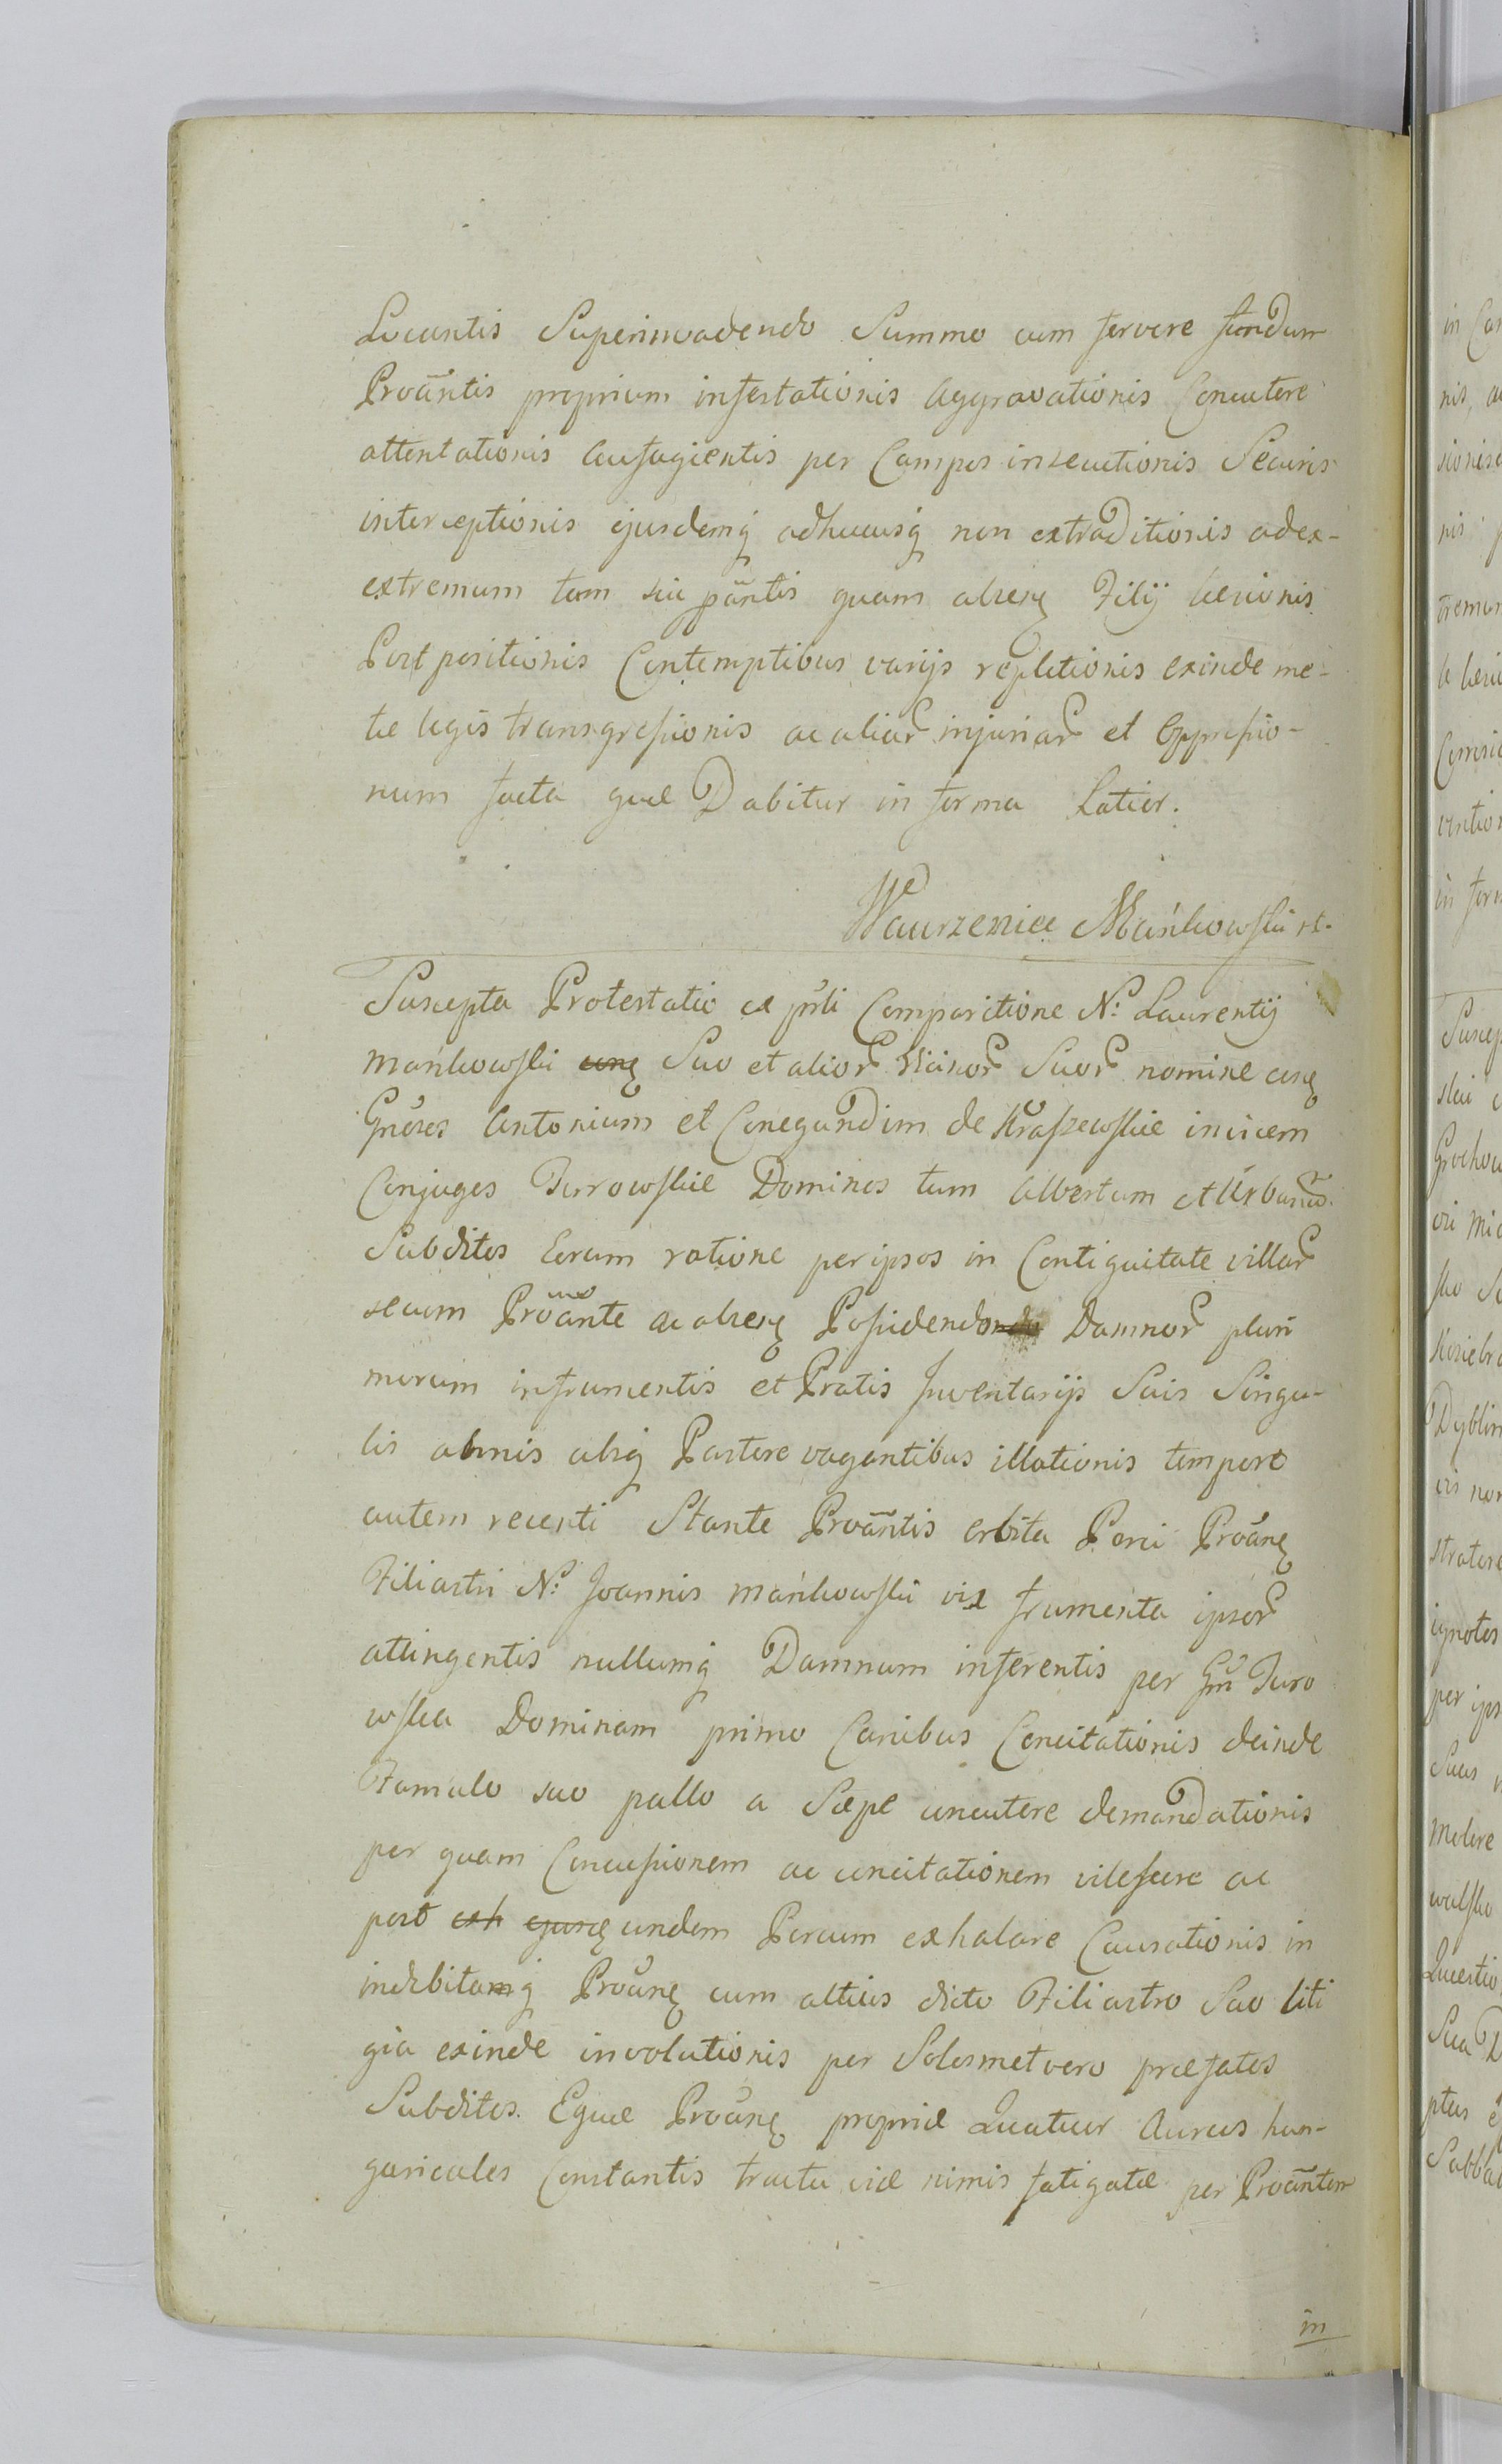 Locantis Superinvadendo Summo cum fervore fundum
Proãntis proprium infestationis Aggravationis Concutere
attentationis Aufugientis per Campos insecutionis Securis
interceptionis ejusdemq adhucusq non extraditionis adex-
extremum tam sui pãntis quam absenę Filij laesionis
Post positionis Contemptibus varijs repletionis exinde me-
tae legis transgressionis ac aliar injuriar et Oppressio-
num facta quae Dabitur in forma Latior.
Wawrzeniec Mańkowski
Suscepta Protestatio ex pñli Comparitione N: Laurentij
Mańkowski Suo et alior Vicinor Suor nomine conę
Gñosos Antonium et Conegundim de Kraszewskie invicem
Conjuges Turowskie Dominos tum Albertum et Urbanu
Subditos Eorum ratione per ipsos in Contiguitate villar
secum Proãnte ac absenę Possidendo Damnor pluri
morum in frumentis et Pratis Inventarijs Suis Singu-
lis annis absq Pastore vagantibus illationis tempore
autem recenti Stante Proãntis orbita Porci Proãnę
Filiastri N: Joannis Mańkowski vix frumenta ipsor
attingentis nullumq Damnum inferentis per Gm Turo
wska Dominam primo Canibus Concitationis deinde
Famulo suo pallo a Saepe concutere demandationis
per quam Concussionem ac concitationem vilescere ac
post eundem Porcum exhalare Causationis in
indebitamq Proãnę cum altius dicto Filiastro Suo liti
gia exinde involutionis per Solosmet vero praefatos
Subditos. Equae Proãnę propriae Quatuor Aureos hun-
garicales Constantis tractu viae nimis fatigatae per Proãntem
in